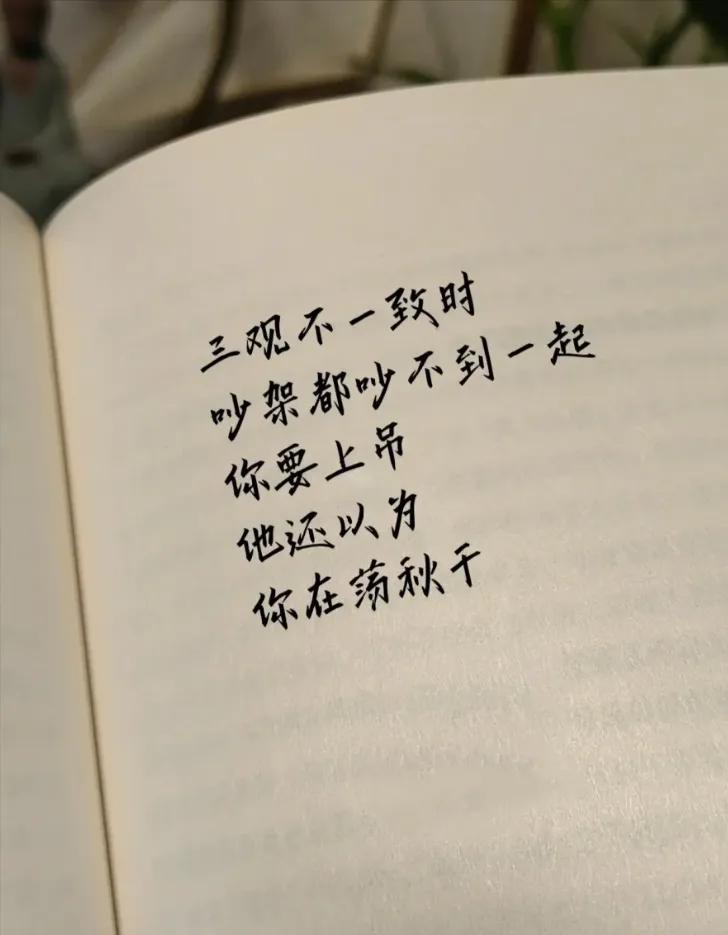 三观不一致时
吵架都吵不到一起
你要上吊
他还以为
你在荡秋千